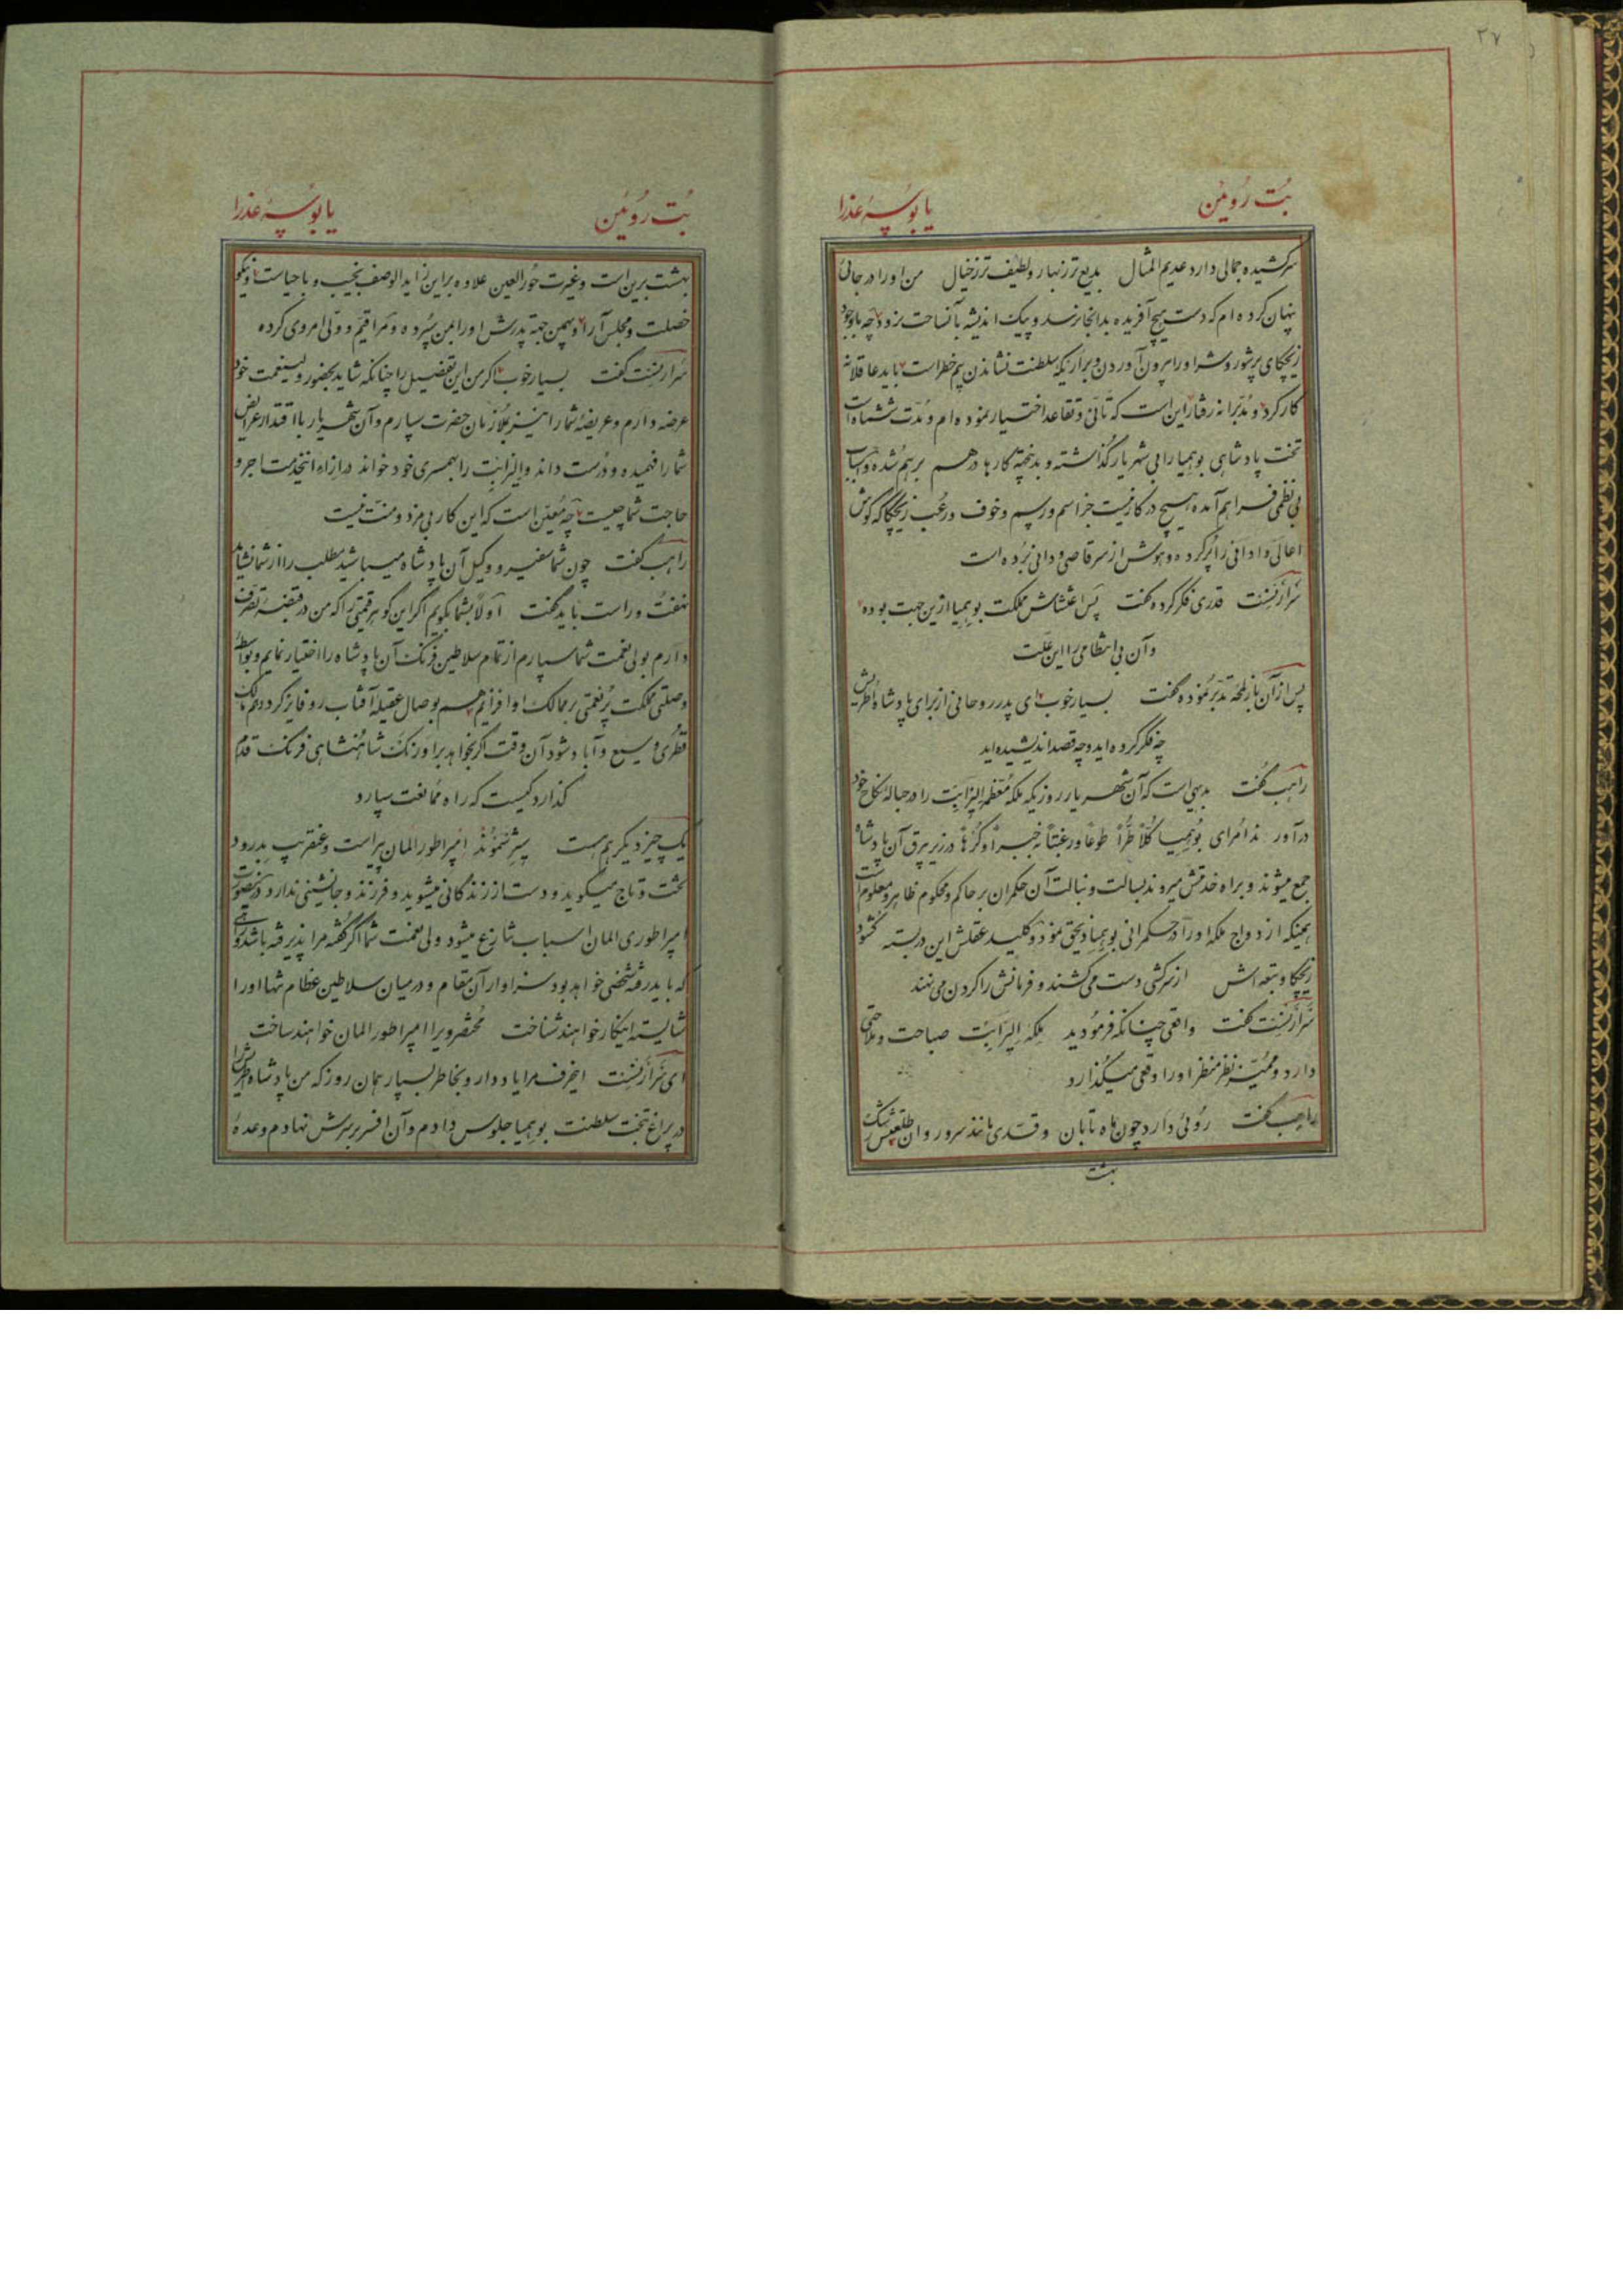 ۳۷
بُت رُوئین
یا بُوسهٔ عذرا
سرکشیده جمالی دارد عدیم المثال بدیع تر ز بهار و لطیف تر ز خیال من او را در جائی
پنهان کرده‌ام که دست هیچ آفریده بدانجا نرسد و پیک اندیشه بآن ساحت نرود چه با وجود
زیچکای پرشور و شر او را بیرون آوردن و بر اریکه سلطنت نشاندن بیم خطر است باید عاقلانه
کار کرد و مدبرانه رفتار این است که تأنی و تقاعد اختیار نموده‌ام و مدت ششماه است
تخت پادشاهی بوهمیا را بی شهریار گذاشته و بدینجهة کارها در هم بر هم شده و اسباب
بی نظمی فراهم آمده هیچ در کار نیست جز اسم و رسم و خوف و رعب زیچکا که گوش
اعالی و ادانی را پر کرده و هوش از سر قاصی و دانی برده است
سرارنست قدری فکر کرده گفت پس اغتشاش مملکت بوهمیا ازین جهت بوده
و آن بی انتظامی را این علت
پس از آن باز لمحهٔ تدبر نموده گفت بسیار خوب ای پدر روحانی از برای پادشاه اطریش
چه فکر کرده‌اید و چه قصد اندیشیده‌اید
راهب گفت بدیهی است که آن شهریار روزیکه ملکه معظمه الیزابت را در حبالهٔ نکاح خود
درآورد امرای بوهمیا کلاً طراً طوعاً و رغبتاً جبراً و کرهاً در زیر بیرق آن پادشاه
جمع میشوند و براه خدمتش میروند بسالت و نبالت آن حکمران بر حاکم و محکوم ظاهر و معلوم است
همینکه ازدواج ملکه او را در حکمرانی بوهمیا ذیحق نمود و کلید عقلش این در بسته گشود
زیچکا و تبعه‌اش از سرکشی دست میکشند و فرمانش را گردن می‌نهند
سرارنست گفت واقعی چنانکه فرمودید ملکه الیزابت صباحت و ملاحتی
دارد و ممیز نظر منظر او را وقعی میگذارد
راهب گفت روئی دارد چون ماه تابان و قدی مانند سرو روان طلعتش رشک
بهشت
بُت رُوئین
یا بُوسهٔ عذرا
بهشت برین است و غیرت حور العین علاوه براین زاید الوصف نجیب و با حیاست و نیکو
خصلت و مجلس آرا و بهمین جهة پدرش او را بمن سپرده و مرا قیم و ولی امر وی کرده
سرارنست گفت بسیار خوب اگر من این تفضیل را چنانکه شاید بحضور ولینعمت خود
عرضه دارم و عریضهٔ شما را نیز بملازمان حضرت سپارم و آن شهریار با اقتدار عرایض
شما را فهمیده و درست داند و الیزابت را بهمسری خود خواند در ازاء اینخدمت اجر و
حاجت شما چیست چه معین است که این کار بی مزد و منت نیست
راهب گفت چون شما سفیر و وکیل آن پادشاه میباشید مطلب را از شما نشاید
نهفت و راست باید گفت اولاً بشما بگویم اگر این گوهر قیمتی را که من در قبضهٔ تصرف
دارم بولی نعمت شما سپارم از تمام سلاطین فرنگ آن پادشاه را اختیار نمایم و بواسطهٔ
وصلتی مملکت پر نعمتی بر ممالک او افزایم هم بوصال عقیلهٔ آفتاب رو فایز گردد هم مالک
قطری وسیع و آباد شود آن وقت اگر بخواهد بر اورنگ شاهنشاهی فرنگ قدم
گذارد کیست که راه ممانعت سپارد
یک چیز دیگر هم هست سیژسموند امپراطور المان پیر است و عنقریب بدرود
تخت و تاج میگوید و دست از زندگانی میشوید و فرزند و جانشینی ندارد در اینصورت
امپراطوری المان اسباب تنازع میشود ولی نعمت شما اگر گفتهٔ مرا پذیرفته باشد
که باید رفته شخصی خواهد بود سزاوار آن مقام و در میان سلاطین عظام تنها او را
شایسته اینکار خواهند شناخت مختصر ویرا امپراطور المان خواهند ساخت
ای سرارنست اینحرف مرا یاد دار و بخاطر بسپار همان روز که من پادشاه اطریش را
در پراغ بتخت سلطنت بوهمیا جلوس دادم و آن افسر بر سرش نهادم وعدهٔ